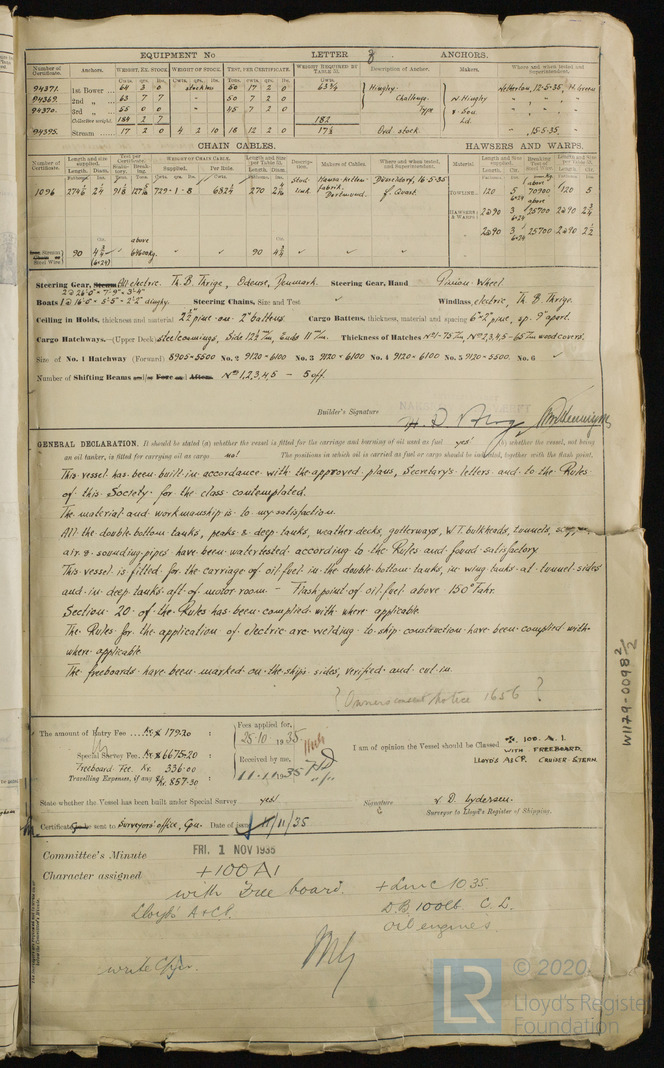 EQUIPMENT No LETTER ANCHORS.
Number of Certificate. Anchors. WEIGHT, EX. STOCK. WEIGHT OF STOCK. TEST, PER CERTIFICATE. WEIGHT REQUIRED BY TABLE 31. Description of Anchor. Makers. Where and when tested and Superintendent.
94371. 1st Bower 64 3 0 stockless 50 17 2 0 63¾ Hingley Netherton, 12.5.35, H. Green
94369. 2nd 63 7 7 50 7 2 0 Challenge N. Hingley
94370. 3rd 55 0 0 45 7 2 0 Type & Son
Collective weight 184 2 7 182 Ld.
94395. Stream 17 2 0 4 2 10 18 12 2 0 17½ Ord. stock 15.5.35
CHAIN CABLES. HAWSERS AND WARPS.
Number of Certificate. Length and size supplied. Test per Certificate. WEIGHT OF CHAIN CABLE. Length and size per Table 31. Description. Makers of Cables. Where and when tested, and Superintendent. Material. Length and Size supplied. Breaking Test of Steel Wire. Length and size per Table 31.
1096 729-1-8 682¼ 270 Stud link Düsseldorf, 16-5-35 TOWLINE 120 5 above 70900 120 5
Dortmund. J. Quast. HAWSERS & WARPS 2@90 3 25700 2@90 2¾
2@90 3 25700 2@90 2½
90 4¾ (6×24) above 90 4¾
Steering Gear, Steam All electric. Th. B. Thrige, Odense, Denmark. Steering Gear, Hand Pinion Wheel
Boats Steering Chains, Size and Test Windlass, electric, Th. B. Thrige.
Ceiling in Holds, thickness and material 2½" pine on 2" battens. Cargo Battens, thickness, material and spacing 6"×2" pine, sp. 9" apart.
Cargo Hatchways.—(Upper Deck) Steel coamings, Side 12½ m/m, Ends 11 m/m. Thickness of Hatches No 1-75 m/m, No 2,3,4,5-65 m/m wood covers.
Size of No. 1 Hatchway (Forward) 8905×5500 No. 2 9120×6100 No. 3 9120×6100 No. 4 9120×6100 No. 5 9120×5500. No. 6
Number of Shifting Beams and/or Fore and Afters No 1,2,3,4,5 – 5 off.
Builder's Signature
GENERAL DECLARATION. It should be stated (a) whether the vessel is fitted for the carriage and burning of oil used as fuel yes! (b) whether the vessel, not being
an oil tanker, is fitted for carrying oil as cargo no! The positions in which oil is carried as fuel or cargo should be indicated, together with the flash point.
This vessel has been built in accordance with the approved plans, Secretary's letters and to the Rules
of this Society for the class contemplated.
The material and workmanship is to my satisfaction.
All the double bottom tanks, peaks & deep tanks, weather decks, gutterways, W.T. bulkheads, tunnels,
air & sounding pipes have been water tested according to the Rules and found satisfactory
This vessel is fitted for the carriage of oil fuel in the double bottom tanks, in wing tanks at tunnel sides
and in deep tanks aft of motor room – Flash point of oil fuel above 150° Fahr.
Section 20 of the Rules has been complied with where applicable
The Rules for the application of electric arc welding to ship construction have been complied with
where applicable
The freeboards have been marked on the ships sides, verified and cut in.
? Owners consent Notice 1656 ?
The amount of Entry Fee Kr. 179.20 Fees applied for, 25.10 1935
Special Survey Fee Kr. 6675.20 Received by me, 11.11.1935
Freeboard Fee. Kr. 336.00
Travelling Expenses, if any Kr. 857.30
I am of opinion the Vessel should be Classed ✠. 100. A. 1.
WITH FREEBOARD.
LLOYD'S A&CP. CRUISER STERN.
State whether the Vessel has been built under Special Survey yes! Signature V. D. Lydersen.
Surveyor to Lloyd's Register of Shipping.
Certificate to be sent to Surveyors' office, Cpn. Date of issue 11/11/35
Committee's Minute FRI. 1 NOV 1935
Character assigned +100 A1
with Free board. + Lmc 10.35
Lloyd's A&CP. D.B 100lb C.L.
Oil engines.
W1179-0098 2/2
LR © 2020
Lloyd's Register
Foundation